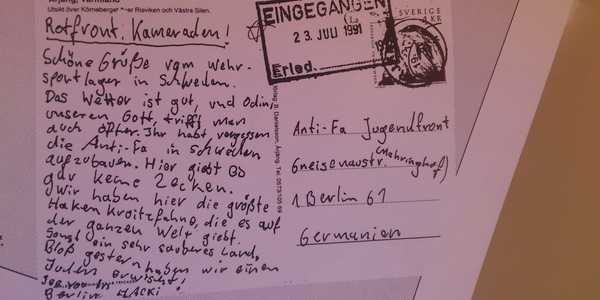 Årjäng, Värmland
Utsikt över Körneberget över Risviken och Västra Silen.
Rotfront, Kameraden!
Schöne Grüße vom Wehr-
sportlager in Schweden.
Das Wetter ist gut, und Odin,
unseren Gott, trifft man
auch öfter. Ihr habt vergessen
die Anti-Fa in Schweden
aufzubauen. Hier giebt es
gar keine Zecken.
Wir haben hier die größte
Haken Kroitzfahne, die es auf
der ganzen Welt giebt.
Sonst ein sehr sauberes Land,
Bloß gestern haben wir einen
Juden erwischt!
Berlin MACKi
EINGEGANGEN
23. JULI 1991
Erled.
SVERIGE
KR
Danielsson, Årjäng. Tel. 0573/105 69
Anti-Fa Jugendfront
Gneisenaustr. (Mehringhof)
1 Berlin 61
Germanien